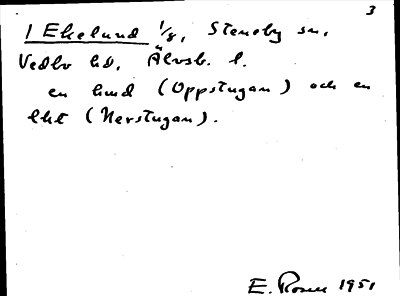 3
1 Ekelund 1/8, Steneby sn,
Vedbo hd, Älvsb. l.
en hmd (Oppstugan) och en
lht (Nerstugan).
E. Rosen 1951